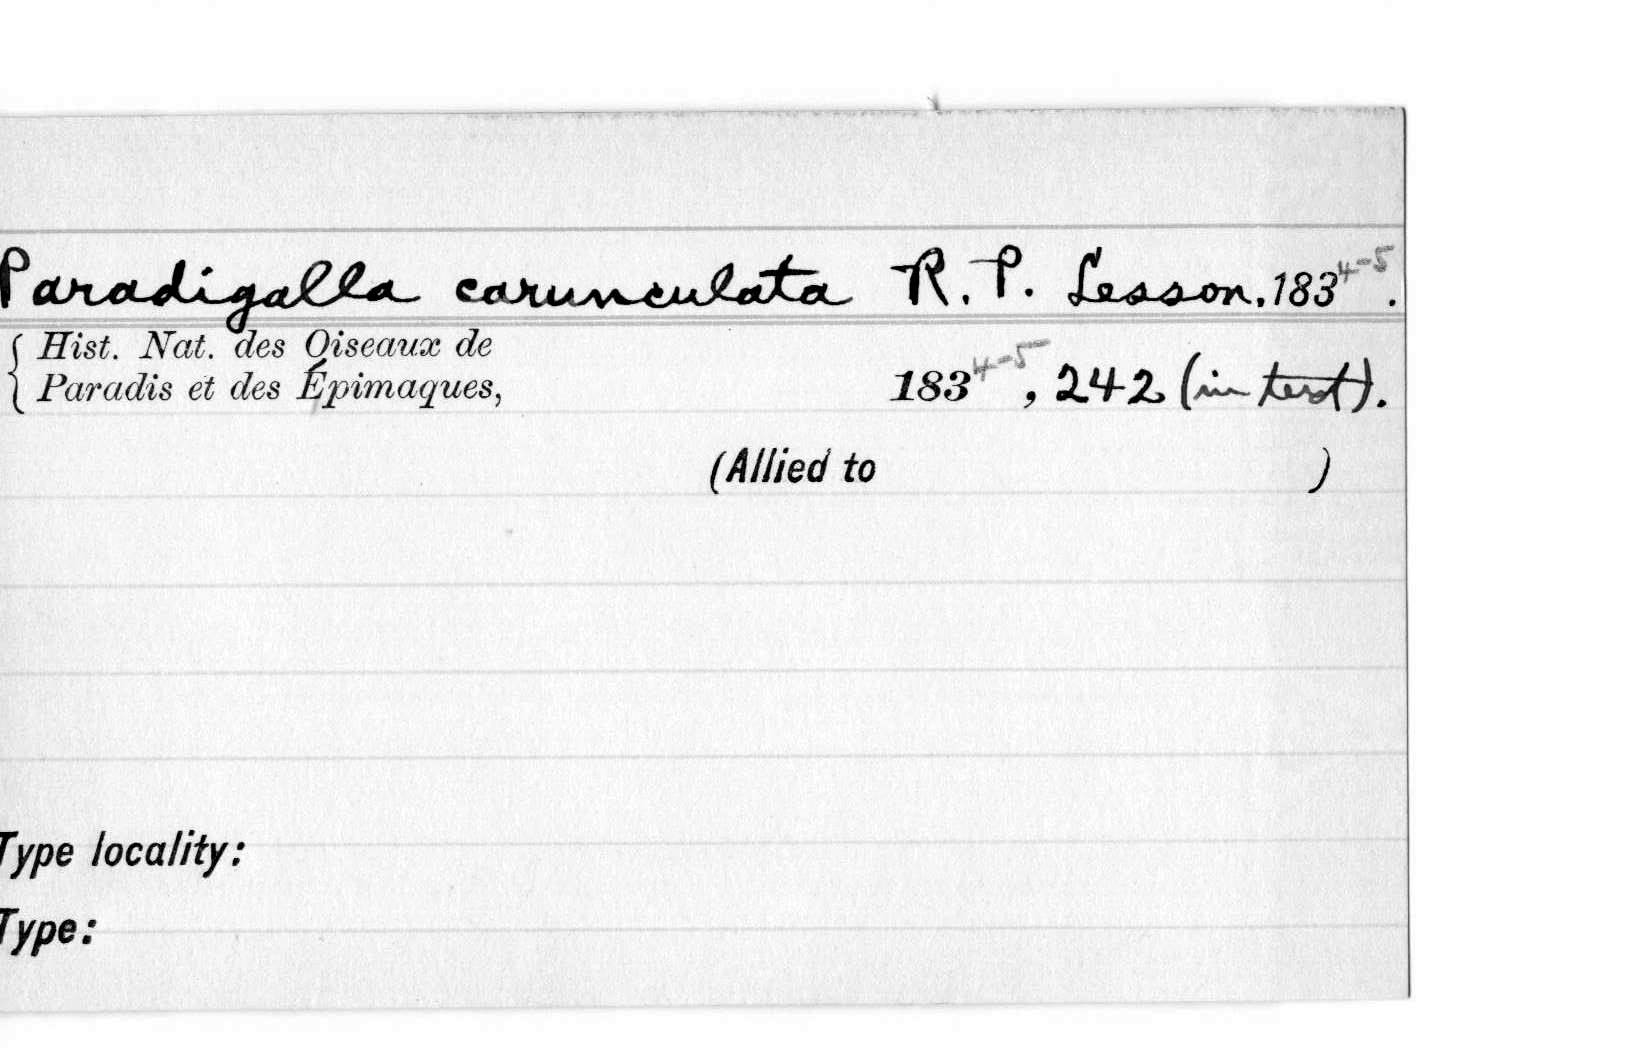 Paradigalla carunculata R. P. Lesson. 1834-5.
Hist. Nat. des Oiseaux de
Paradis et des Épimaques, 1834-5, 242 (in text).
(Allied to )
Type locality:
Type: